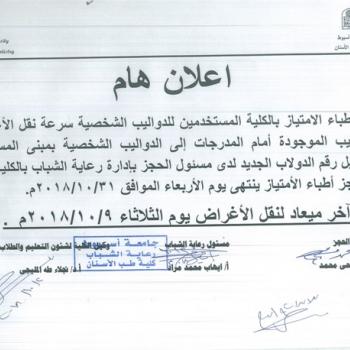 أسيوط
الأسنان
اعلان هام
أطباء الامتياز بالكلية المستخدمين للدواليب الشخصية سرعة نقل
الموجودة أمام المدرجات إلى الدواليب الشخصية بمبنى
رقم الدولاب الجديد لدى مسئول الحجز بإدارة رعاية الشباب
أطباء الأمتياز ينتهى يوم الأربعاء الموافق ٢٠١٨/١٠/٣١م.
آخر ميعاد لنقل الأغراض يوم الثلاثاء ٢٠١٨/١٠/٩م .
الحجز مسئول رعاية الشباب وكيل الكلية لشئون التعليم والطلاب
محمد أ/ ايهاب محمد أ.د/ نجلاء طه المليجى
جامعة أسيوط
رعاية الشباب
كلية طب الأسنان